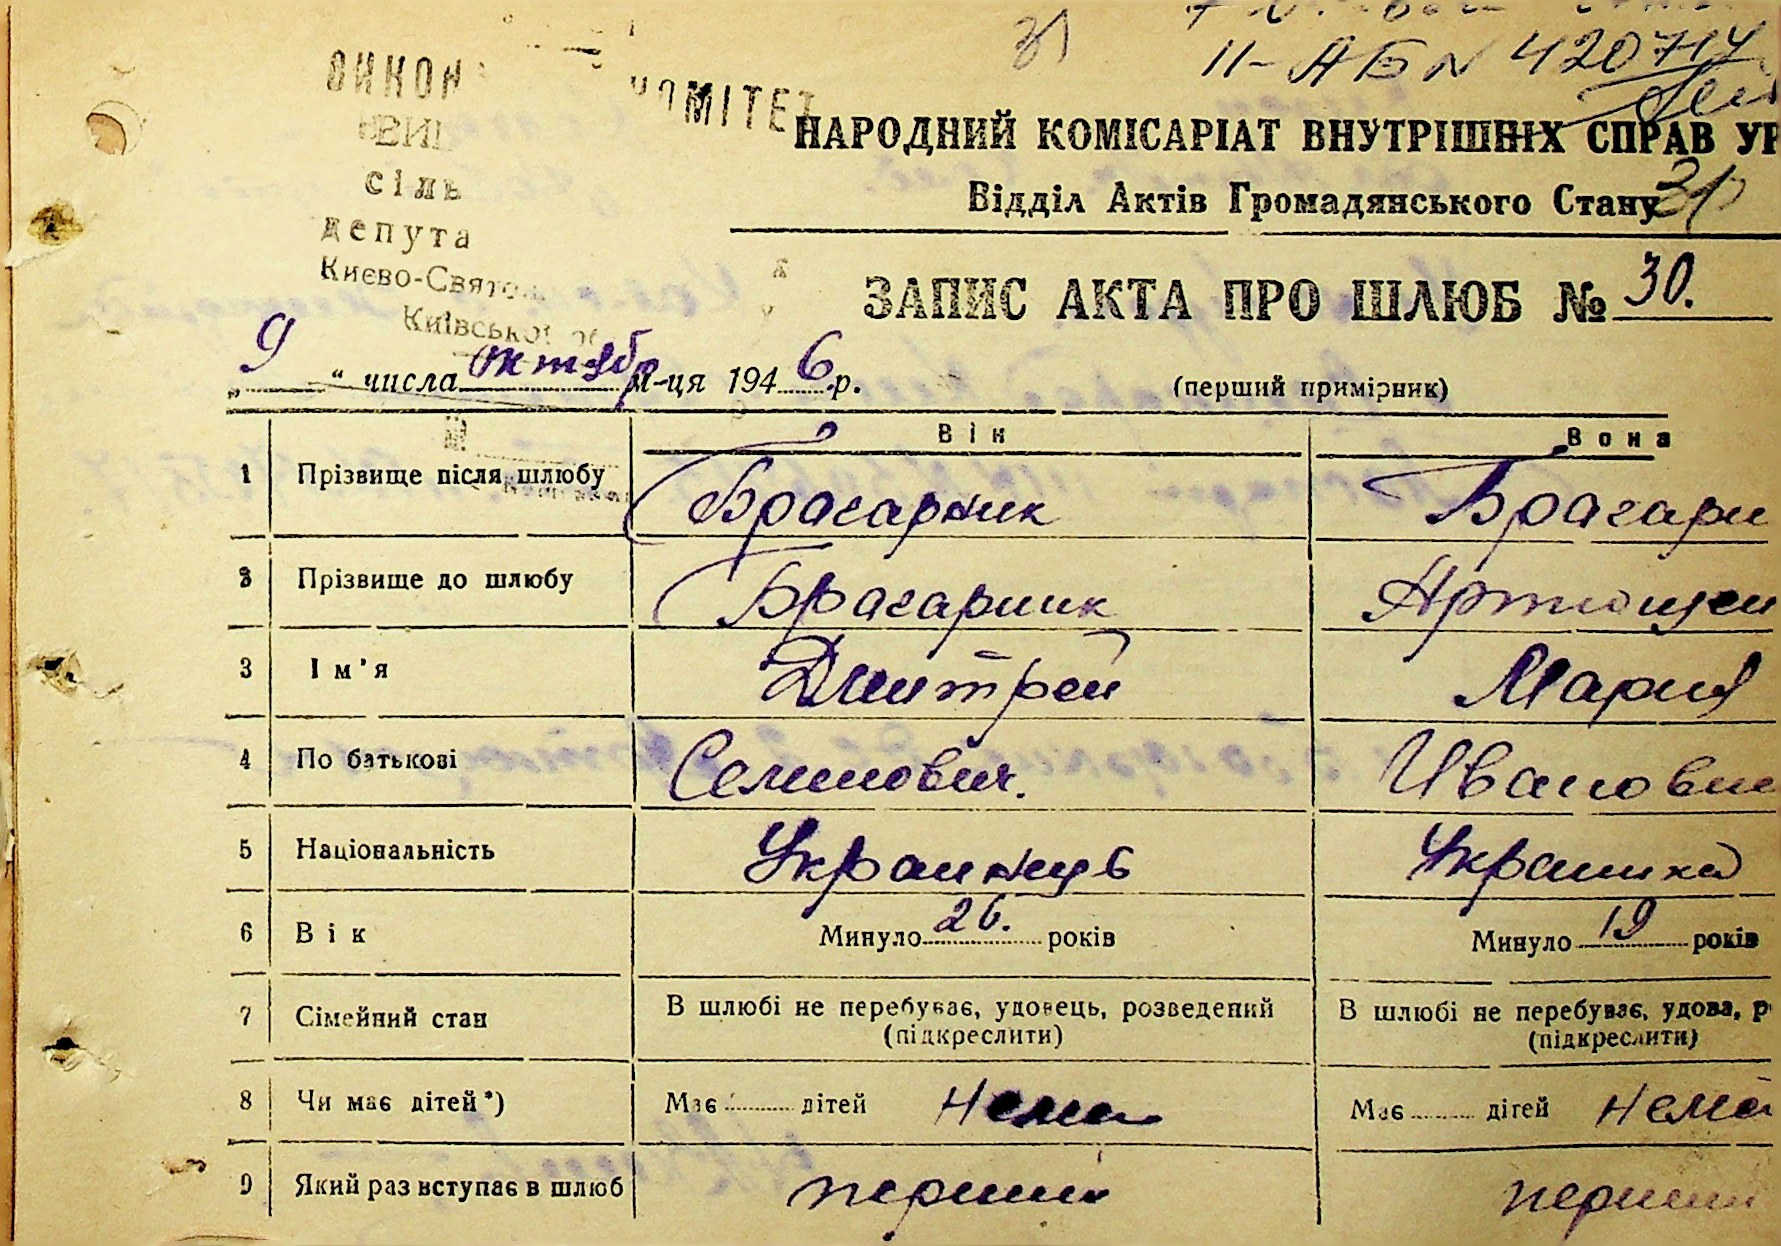 31
II-АБ № 420714
ВИКОН КОМІТЕТ
сіль
депута
Києво-Свято
Київської об
НАРОДНИЙ КОМІСАРІАТ ВНУТРІШНІХ СПРАВ УР
Відділ Актів Громадянського Стану
31
ЗАПИС АКТА ПРО ШЛЮБ № 30.
„ 9 “ числа октябр м-ця 194 6 р.
(перший примірник)
Він Вона
1 Прізвище після шлюбу Брагарник Брагарн
2 Прізвище до шлюбу Брагарник Артющен
3 Ім'я Дмитрей Мария
4 По батькові Семинович. Ивановн
5 Національність Украинець Украинка
6 Вік Минуло 26. років Минуло 19 років
7 Сімейний стан В шлюбі не перебуває, удовець, розведений В шлюбі не перебуває, удова, р
(підкреслити) (підкреслити)
8 Чи має дітей*) Має дітей нема Має дітей нема
9 Який раз вступає в шлюб перший перший